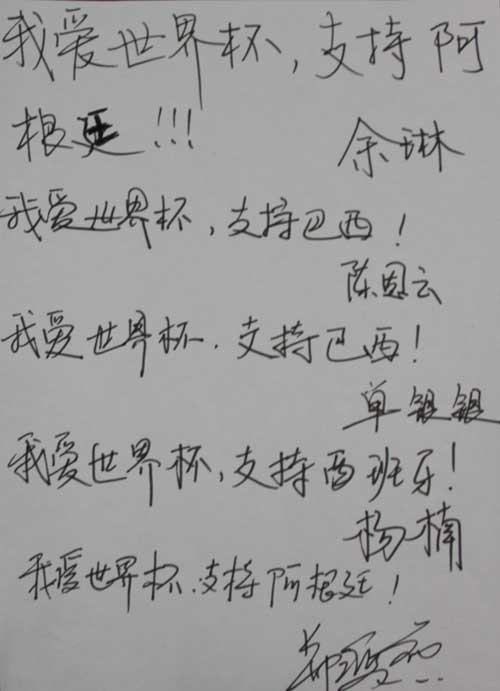 我爱世界杯，支持阿
根廷!!!
余琳
我爱世界杯，支持巴西！
陈恩云
我爱世界杯．支持巴西！
单银银
我爱世界杯，支持西班牙！
杨楠
我爱世界杯．支持阿根廷！